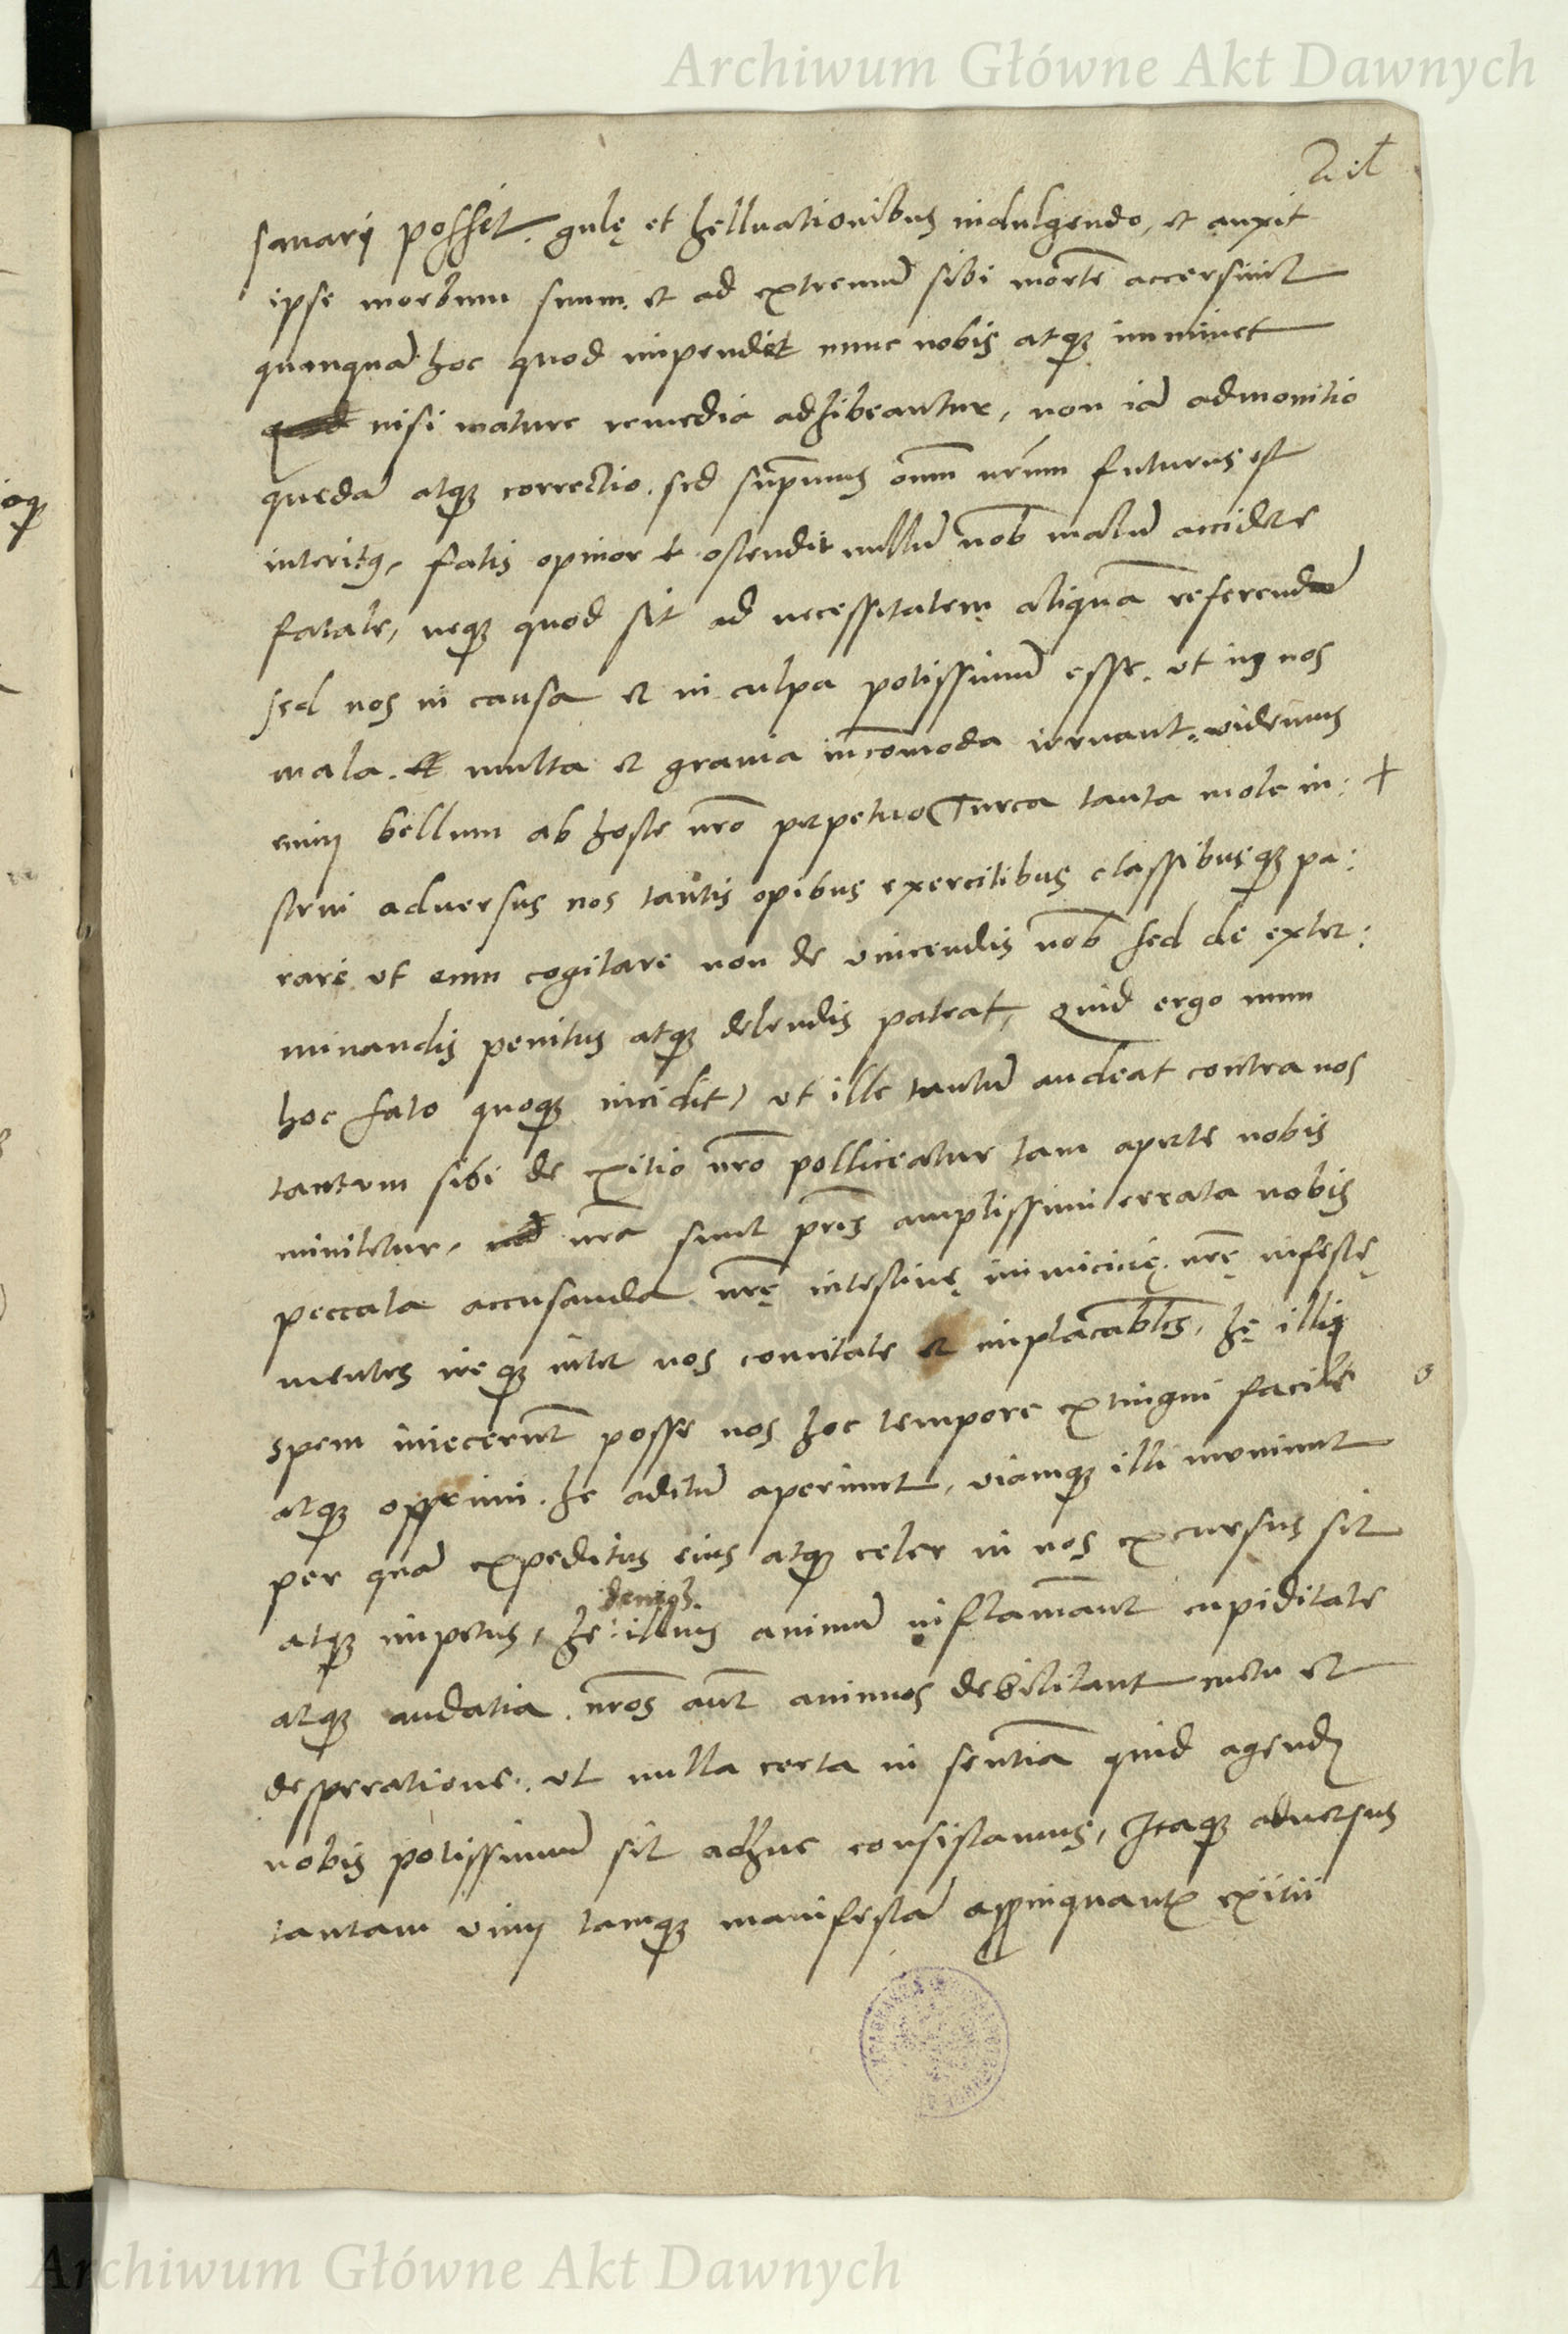 Archiwum Główne Akt Dawnych
sanarj posset. gulę et helluationibus indulgendo, et auxit
ipse morbum suum. et ad extremũ sibi mortẽ accersiuit
quanquã hoc quod impendet nunc nobis atqꝫ imminet
nisi mature remedia adhibeantur, non iã admonitio
quedã atqꝫ correctio. sed supmus oĩm nrũm futurus est
interitꝰ, fatis opinor ostendit nullũ nob malũ accidere
fatale, neqꝫ quod sit ad necessitatem aliquã referendũ
sed nos in causa et in culpa potissimũ esse. ut in nos
mala. multa et grauia incõmoda irruant. uidemus
enim bellum ab hoste nrõ perpetuo Turca tanta mole in: +
strui aduersus nos tantis opibus exercitibus classibusqꝫ pa:
rari ut eum cogitare non de uincendis nob sed de exter:
minandis penitus atqꝫ delendis pateat, Quid ergo num
hoc fato quoqꝫ incidit, ut ille tantũ audeat contra nos
tantum sibi de exitio nrõ polliceatur tam aperte nobis
minitetur, nrã sunt pr̃es amplissimi errata nobis
peccata accusanda nrę intestinę inimicicię. nrę infestę
mentes ireqꝫ inter nos concitate et implacabẽs, hę illis
spem iniecerũt posse nos hoc tempore extingui facile
atqꝫ opprimi. he aditũ aperiunt, uiamqꝫ illi muniunt
per quã expeditus eius atqꝫ celer in nos excursus sit
deniqꝫ
atqꝫ impetus, he illius animũ inflamãnt cupiditate
atqꝫ audatia. nrõs aũt animos debilitant metu et
desperatione. ut nulla certa in sentĩa quid agend
nobis potissimũ sit adhuc consistamus, Itaqꝫ aduersus
tantam uim tamqꝫ manifestã appinquantꝭ exitii
Archiwum Główne Akt Dawnych